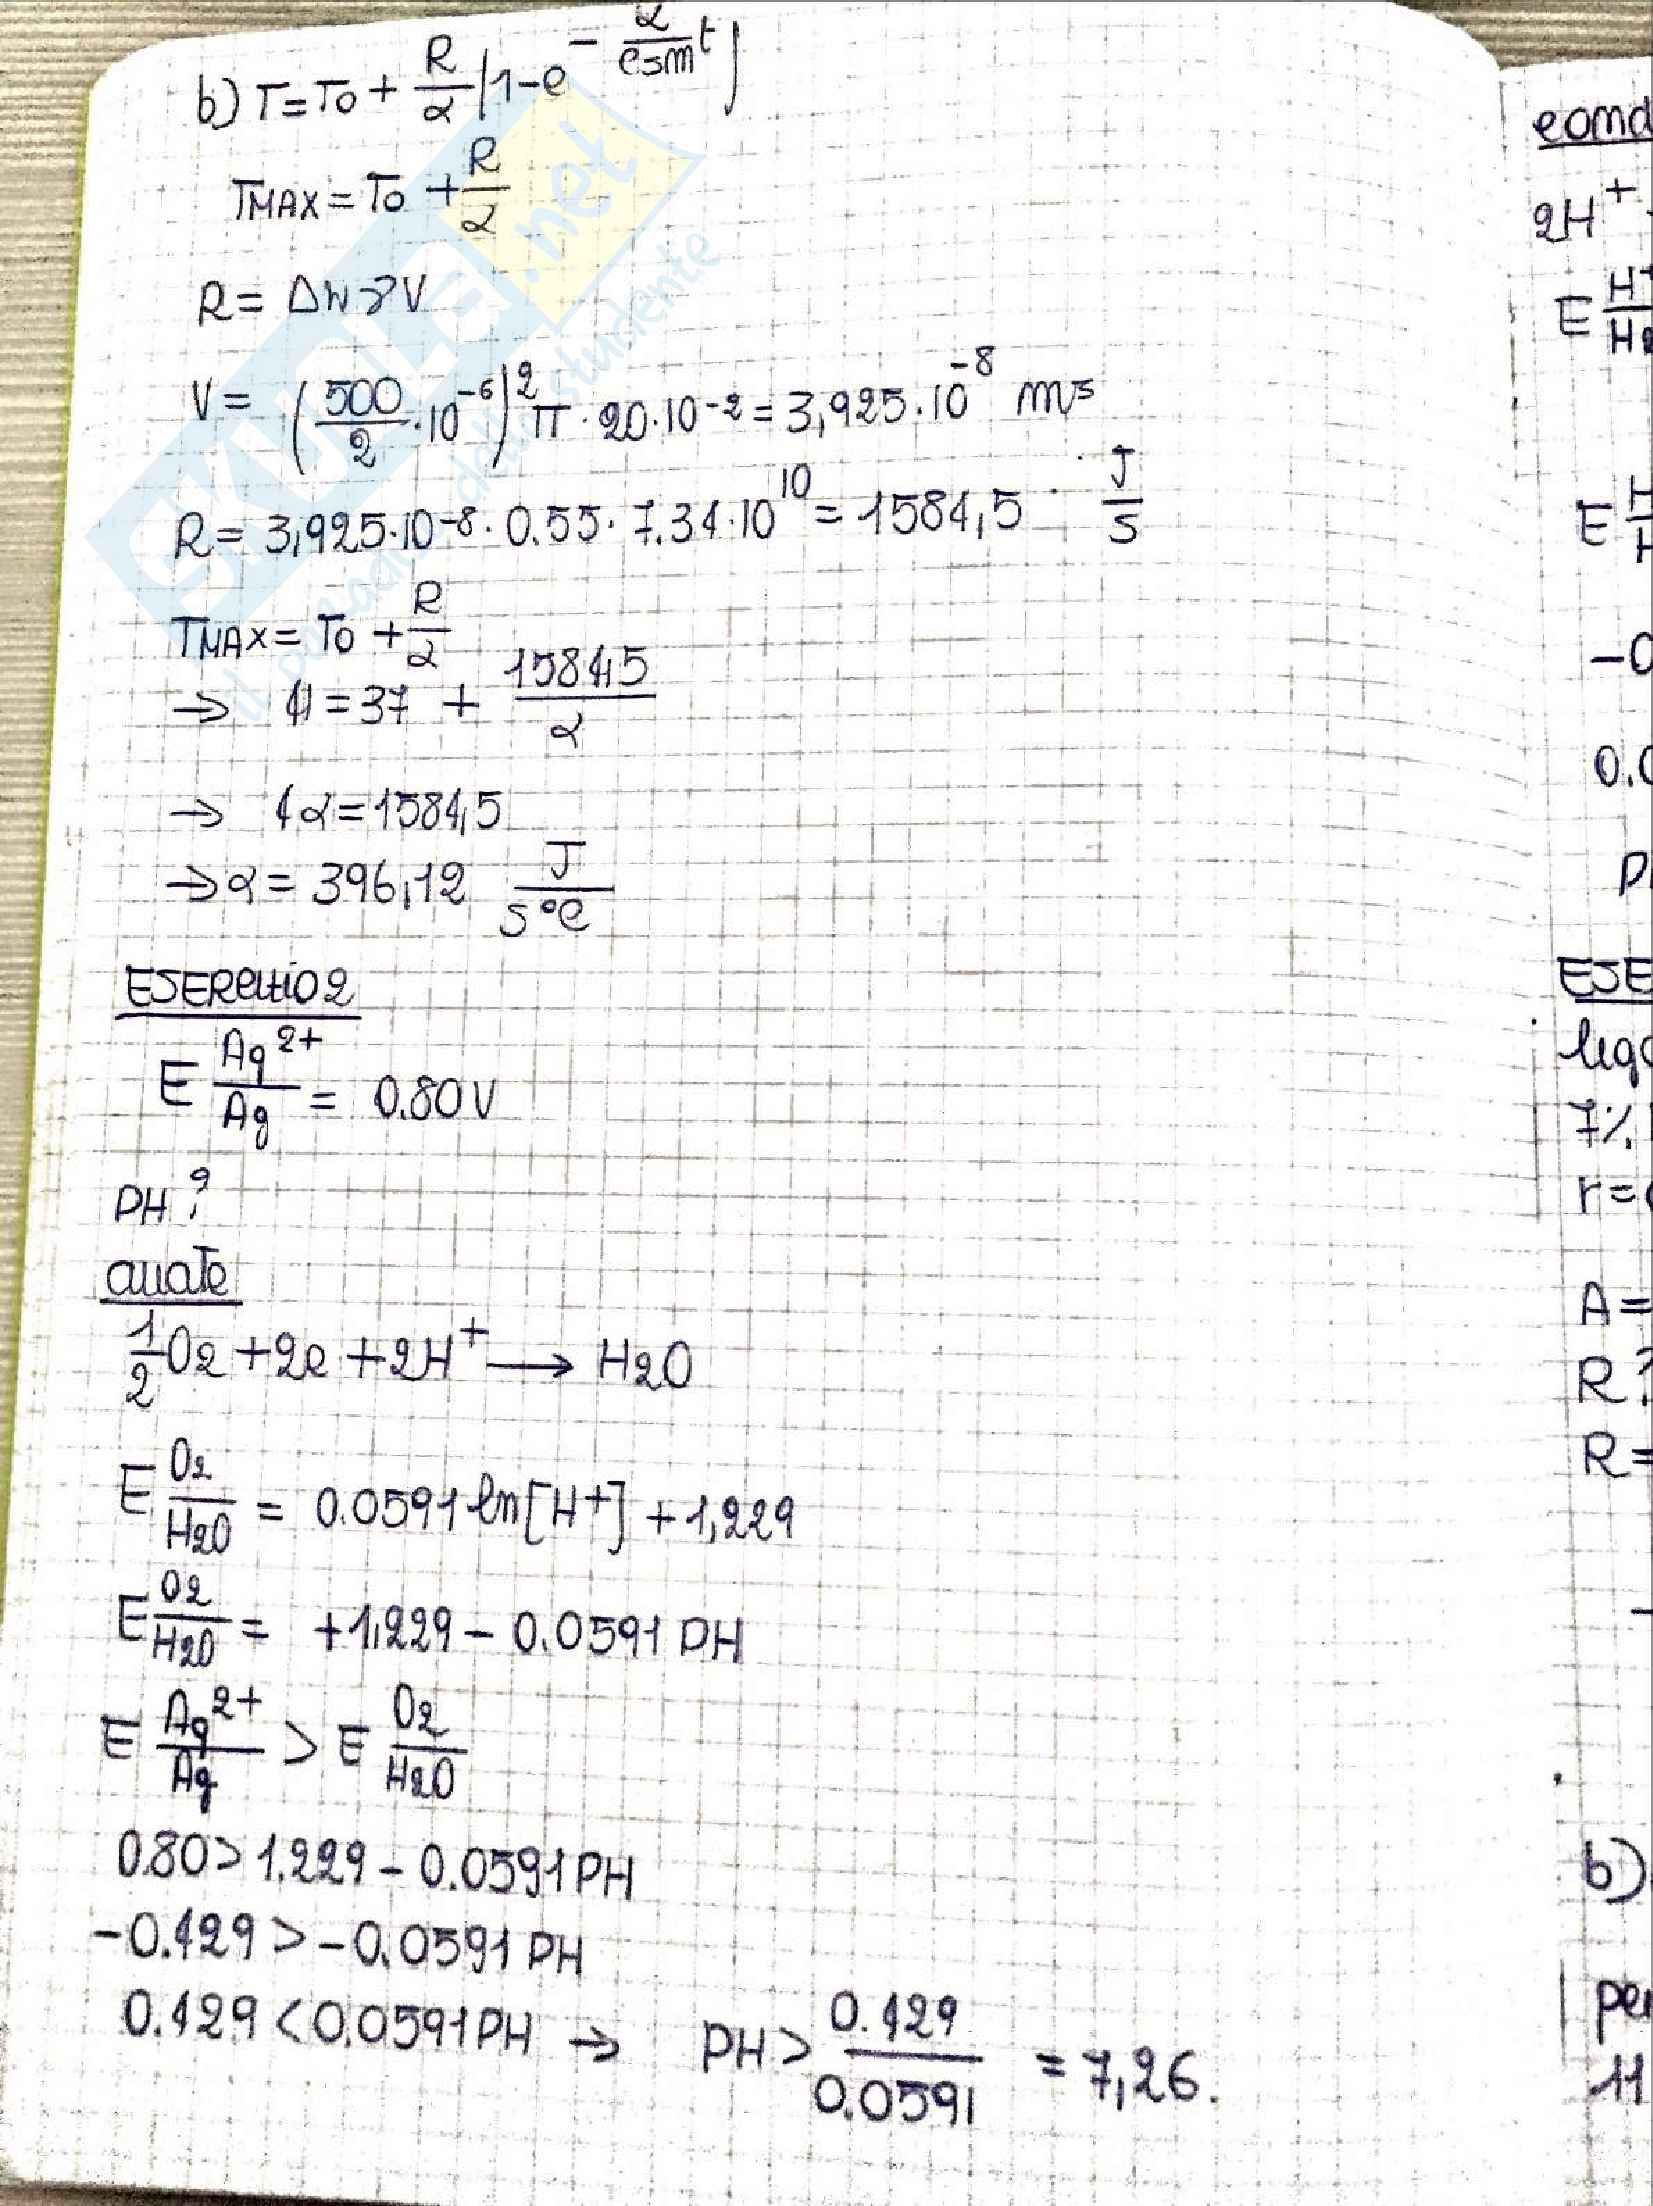 b) T = To + R/α (1 - e^(- α/csm t))
TMAX = To + R/α
R = ΔW γ V
V = (500/2 · 10^-6)^2 π · 20 · 10^-2 = 3,925 · 10^-8 m³
R = 3,925 · 10^-8 · 0.55 · 7.34 · 10^10 = 1584,5 J/s
TMAX = To + R/α
→ 41 = 37 + 1584,5/α
→ 4α = 1584,5
→ α = 396,12 J/s°C
ESERCIZIO 2
E Ag²⁺/Ag = 0.80 V
PH?
½O2 + 2e + 2H⁺ → H2O
E O2/H2O = 0.0591 ln[H+] + 1,229
E O2/H2O = +1,229 - 0.0591 PH
E Ag²⁺/Ag > E O2/H2O
0.80 > 1.229 - 0.0591 PH
-0.429 > -0.0591 PH
0.429 < 0.0591 PH → PH > 0.429/0.0591 = 7,26.
SKUOLA.net
2H⁺
E H⁺/H2
E
-0
0.0
P
ESE
7%
r =
A =
R?
R =
b)
11